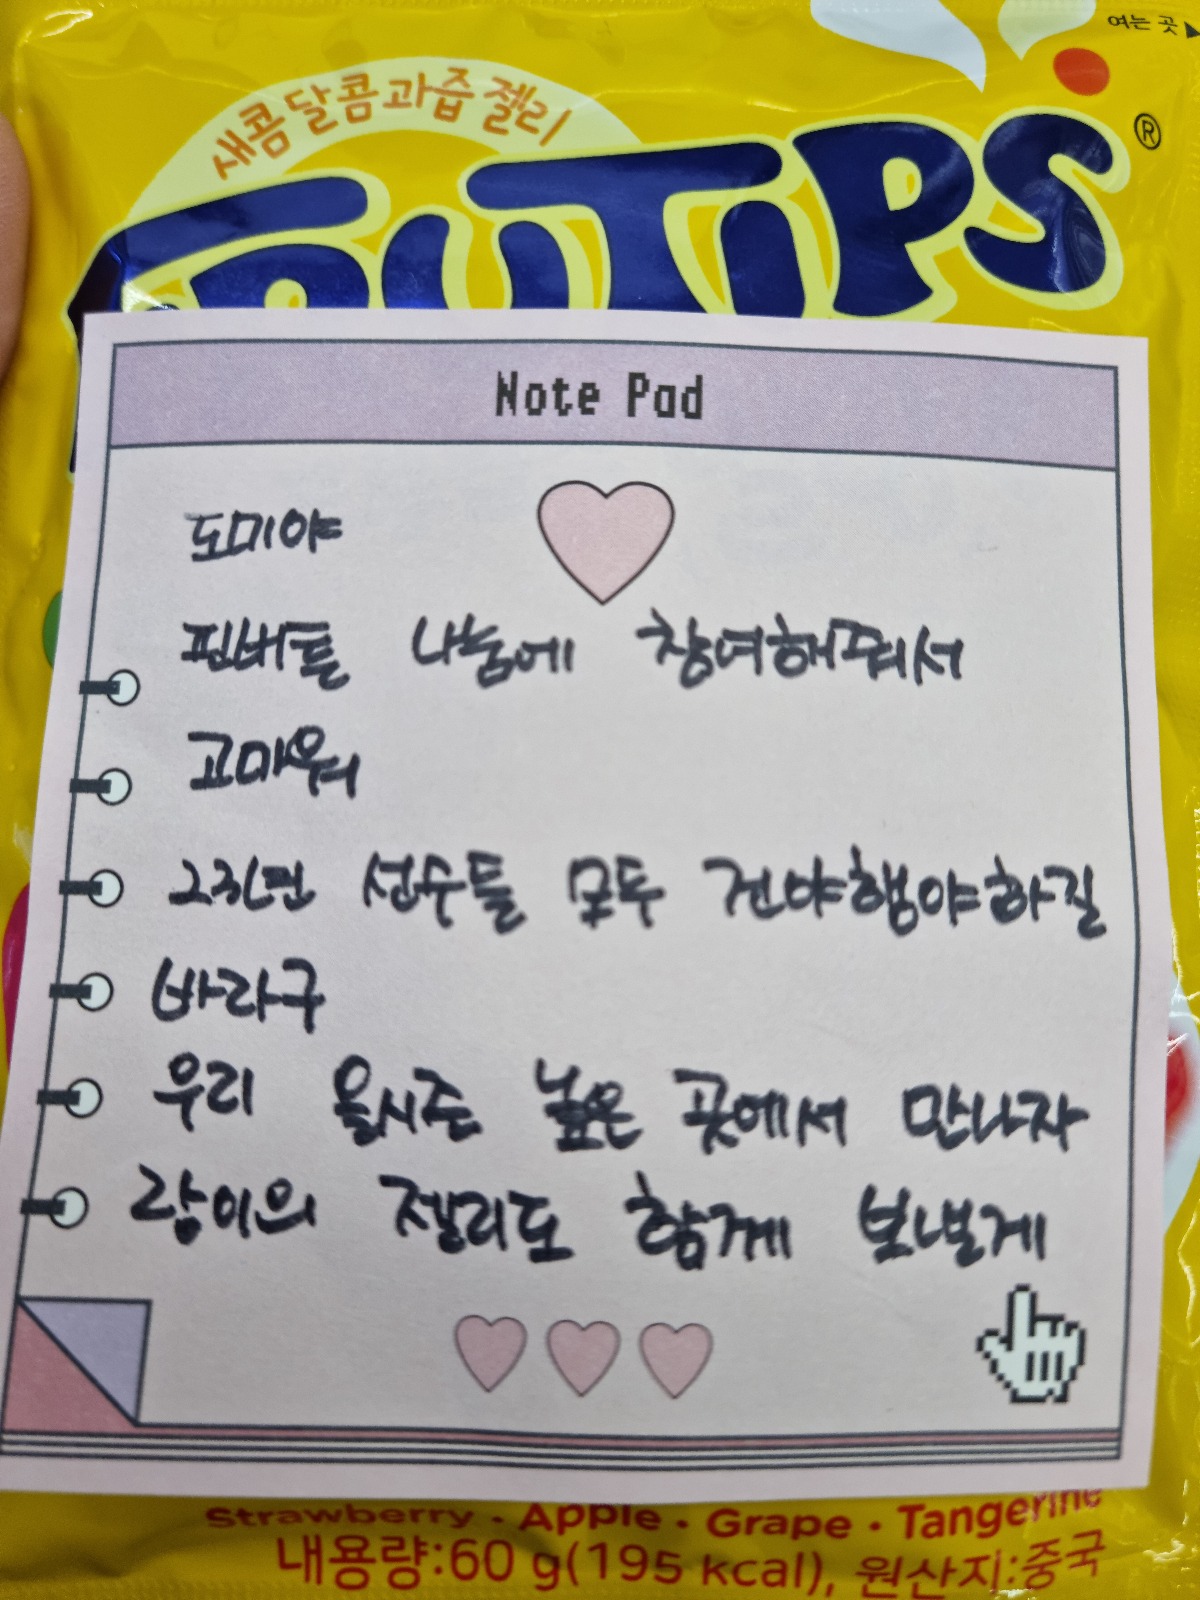 여는 곳
새콤달콤 과즙 젤리
FRUTIPS®
Note Pad
도미야
핀버튼 나눔에 참여해줘서
고마워
선수들 모두 건야행야하길
바라구
우리 올시즌 높은 곳에서 만나자
랑이의 젤리도 함께 보낼게
Strawberry · Apple · Grape · Tangerine
내용량:60 g(195 kcal), 원산지:중국